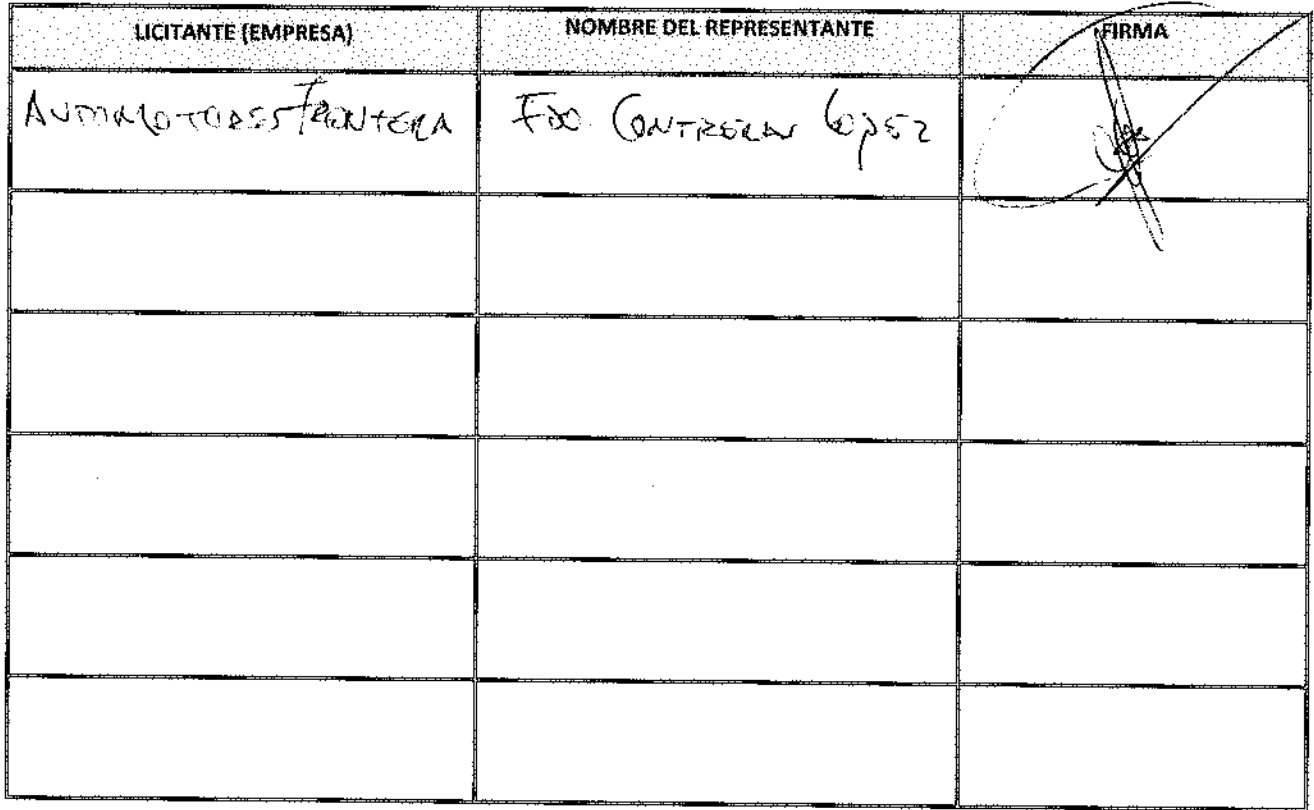 LICITANTE (EMPRESA) NOMBRE DEL REPRESENTANTE FIRMA
AUTOMOTORES FRONTERA FDO. CONTRERAS LOPEZ